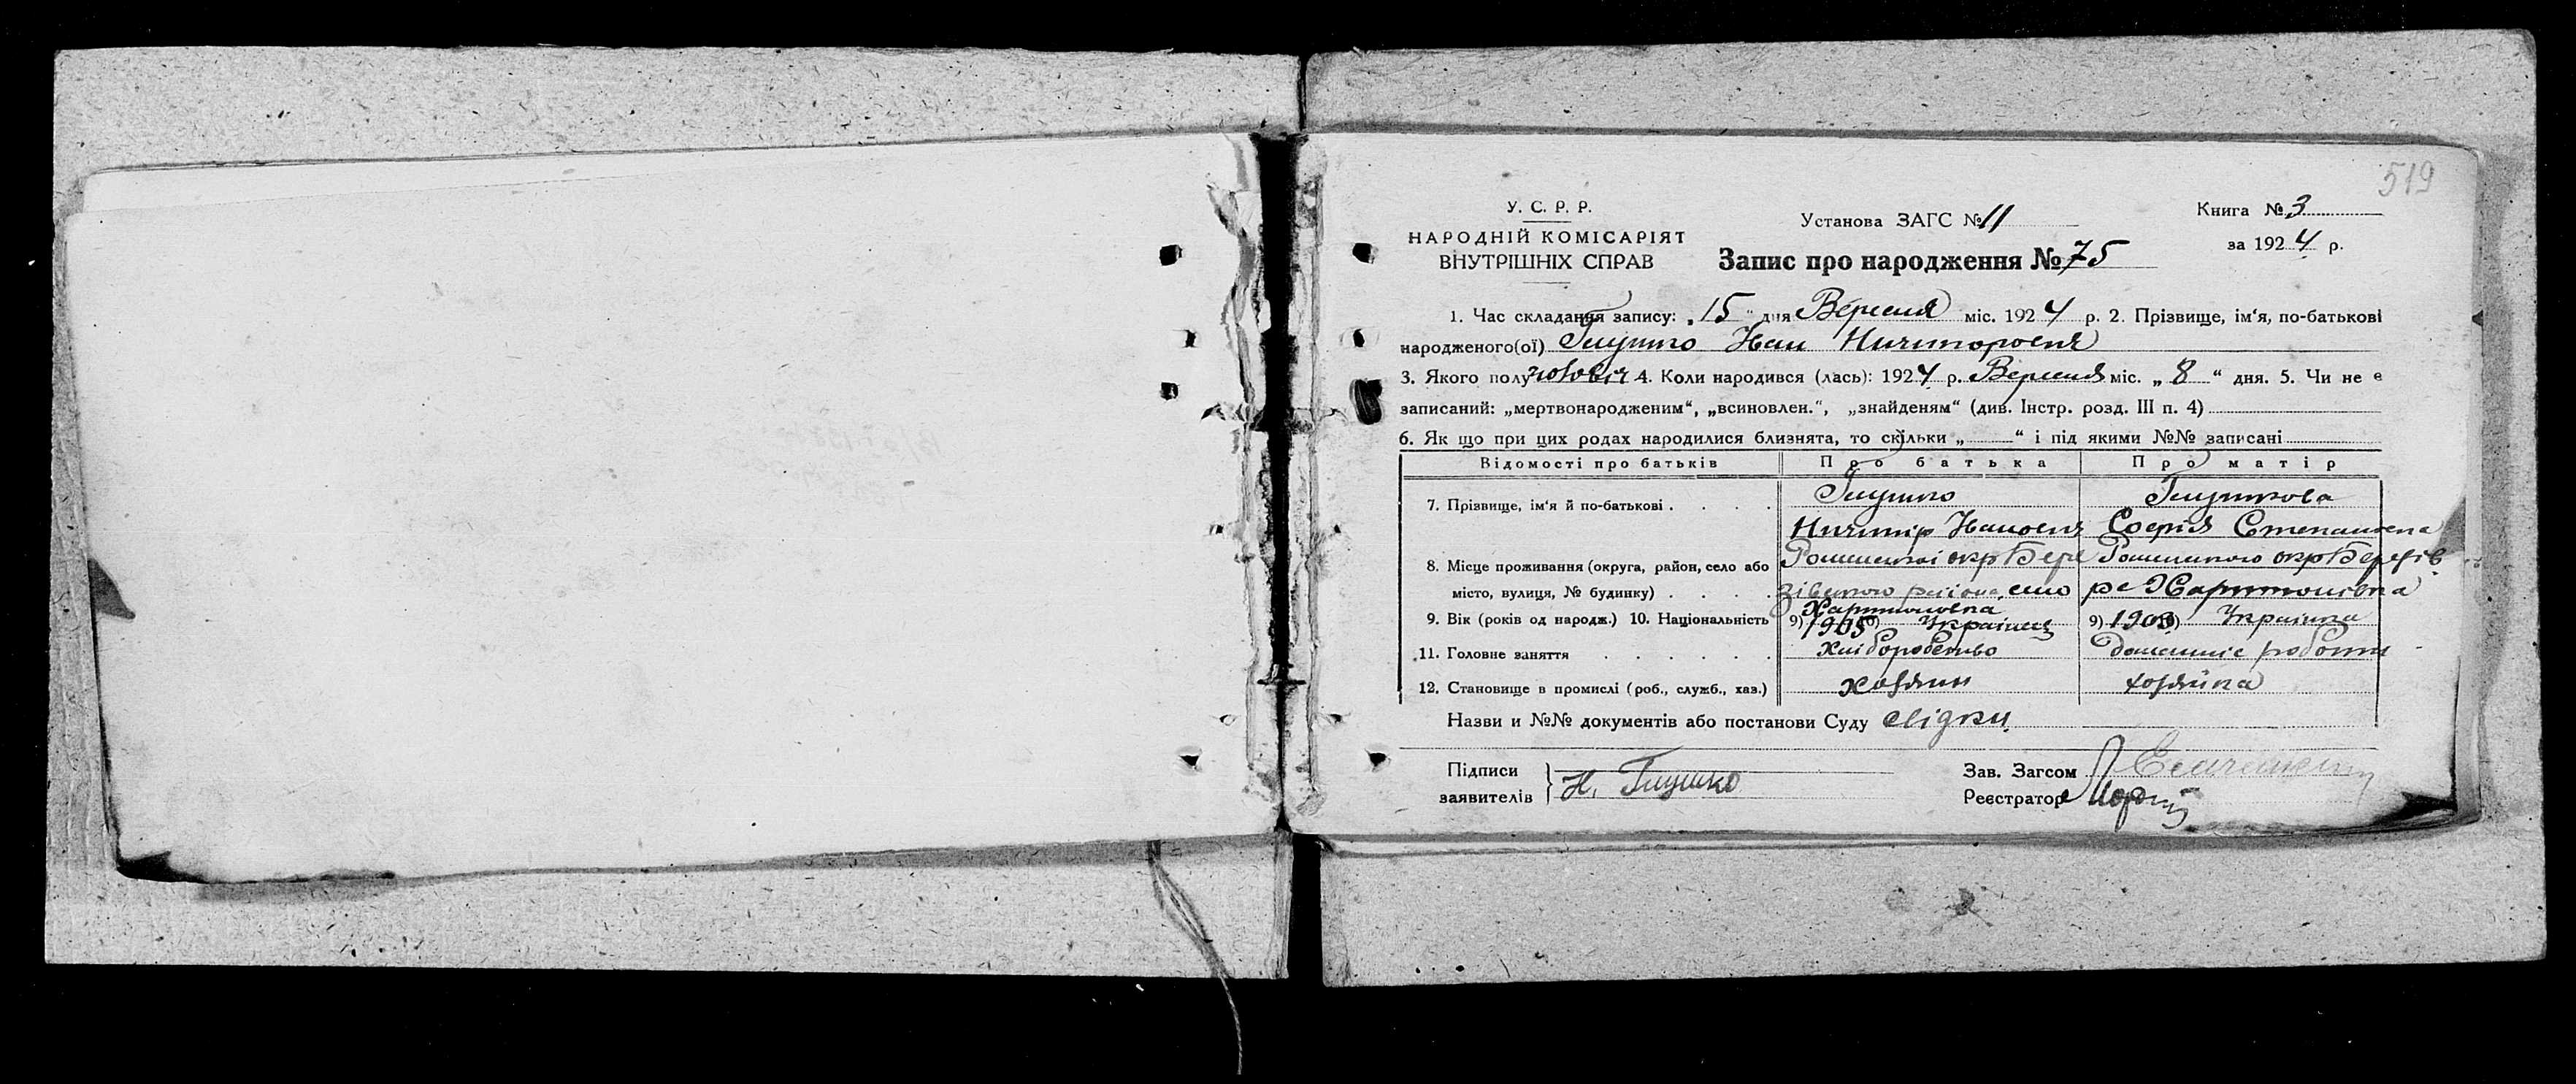 519
У. С. Р. Р.
НАРОДНІЙ КОМІСАРІЯТ
ВНУТРІШНІХ СПРАВ
Установа ЗАГС № 11
Запис про народження № 75
Книга № 3
за 1924 р.
1. Час складання запису: „15“ дня Вересня міс. 1924 р. 2. Прізвище, ім'я, по-батькові
народженого(ої) Глушко Иван Ничипорович
3. Якого полу чоловіч 4. Коли народився (лась): 1924 р. Вересня міс. „8“ дня. 5. Чи не є
записаний: „мертвонародженим“, „всиновлен.“, „знайденям“ (див. Інстр. розд. III п. 4)
6. Як що при цих родах народилися близнята, то скільки „ “ і під якими №№ записані
Відомості про батьків Про батька Про матір
7. Прізвище, ім'я й по-батькові . . . . Глушко Глушкова
Ничипір Иванович Софія Степановна
8. Місце проживання (округа, район, село або Роменської окр Бере Роменського окр Березів
місто, вулиця, № будинку) . . . . зівського район, село р с Харитонівка
Харитоновка
9. Вік (років од народж.) 10. Національність 9) 1905 10) Українець 9) 1903 10) Українка
11. Головне заняття . . . . . . Хліборобство Домашнє роботи
12. Становище в промислі (роб., служб., хаз.) хозяин хозяйка
Назви и №№ документів або постанови Суду свідки
Підписи
заявителів } Н. Глушко
Зав. Загсом
Реєстратор